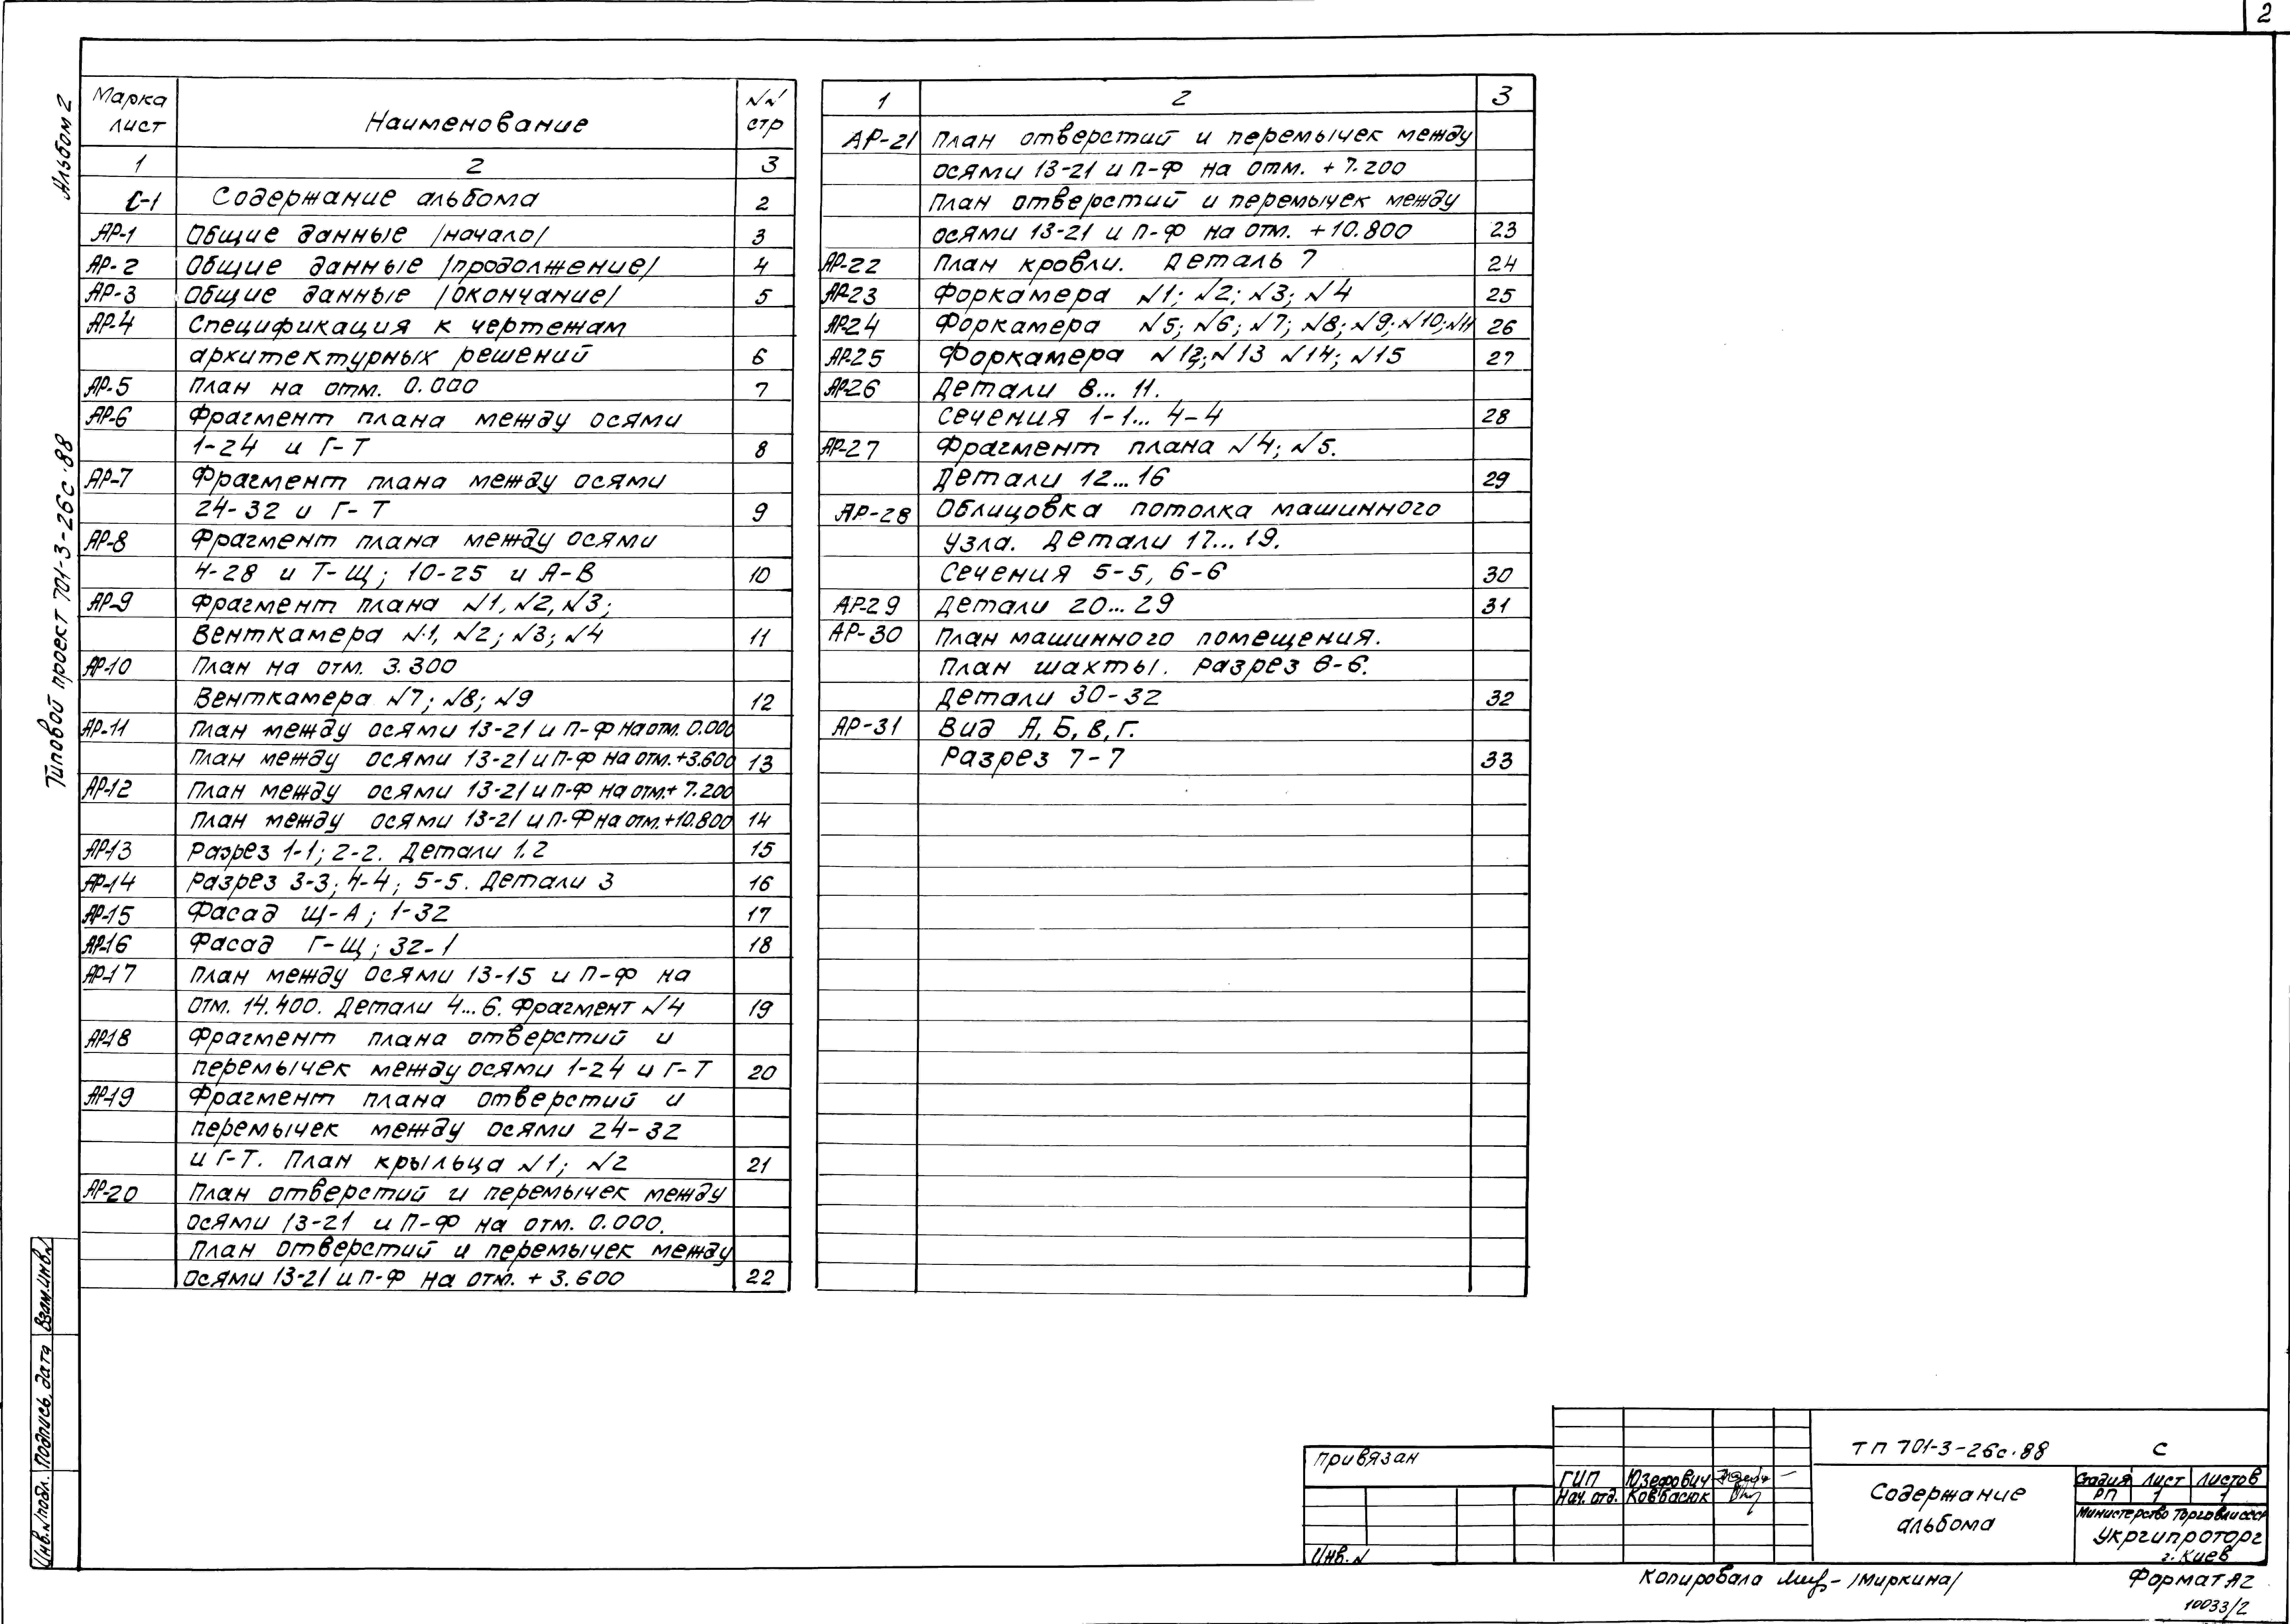 2
Альбом 2
Типовой проект 701-3-26с.88
Марка лист Наименование №№ стр
1 2 3
С-1 Содержание альбома 2
АР-1 Общие данные /начало/ 3
АР-2 Общие данные /продолжение/ 4
АР-3 Общие данные /окончание/ 5
АР-4 Спецификация к чертежам
архитектурных решений 6
АР-5 План на отм. 0.000 7
АР-6 Фрагмент плана между осями
1-24 и Г-Т 8
АР-7 Фрагмент плана между осями
24-32 и Г-Т 9
АР-8 Фрагмент плана между осями
4-28 и Т-Щ; 10-25 и А-В 10
АР-9 Фрагмент плана №1, №2, №3;
Венткамера №1, №2; №3; №4 11
АР-10 План на отм. 3.300
Венткамера №7; №8; №9 12
АР-11 План между осями 13-21 и П-Ф на отм. 0.000
План между осями 13-21 и П-Ф на отм. +3.600 13
АР-12 План между осями 13-21 и П-Ф на отм. + 7.200
План между осями 13-21 и П-Ф на отм. +10.800 14
АР-13 Разрез 1-1; 2-2. Детали 1.2 15
АР-14 Разрез 3-3; 4-4; 5-5. Детали 3 16
АР-15 Фасад Щ-А; 1-32 17
АР-16 Фасад Г-Щ; 32-1 18
АР-17 План между осями 13-15 и П-Ф на
отм. 14.400. Детали 4...6. Фрагмент №4 19
АР-18 Фрагмент плана отверстий и
перемычек между осями 1-24 и Г-Т 20
АР-19 Фрагмент плана отверстий и
перемычек между осями 24-32
и Г-Т. План крыльца №1; №2 21
АР-20 План отверстий и перемычек между
осями 13-21 и П-Ф на отм. 0.000.
План отверстий и перемычек между
осями 13-21 и П-Ф на отм. + 3.600 22
1 2 3
АР-21 План отверстий и перемычек между
осями 13-21 и П-Ф на отм. + 7.200
План отверстий и перемычек между
осями 13-21 и П-Ф на отм. +10.800 23
АР-22 План кровли. Деталь 7 24
АР-23 Форкамера №1; №2; №3; №4 25
АР-24 Форкамера №5; №6; №7; №8; №9; №10; №11 26
АР-25 Форкамера №12; №13 №14; №15 27
АР-26 Детали 8... 11.
Сечения 1-1... 4-4 28
АР-27 Фрагмент плана №4; №5.
Детали 12...16 29
АР-28 Облицовка потолка машинного
узла. Детали 17...19.
Сечения 5-5, 6-6 30
АР-29 Детали 20...29 31
АР-30 План машинного помещения.
План шахты. Разрез 6-6.
Детали 30-32 32
АР-31 Вид А, Б, В, Г.
Разрез 7-7 33
Инв.№подл. Подпись, дата Взам.инв.№
Привязан
Инв. №
ГИП Юзефович
Нач. отд. Ковбасюк
ТП 701-3-26с.88 С
Содержание
альбома
Стадия Лист Листов
РП 1 1
Министерство Торговли СССР
Укргипроторг
г. Киев
Копировала /Миркина/
Формат А2
10033/2